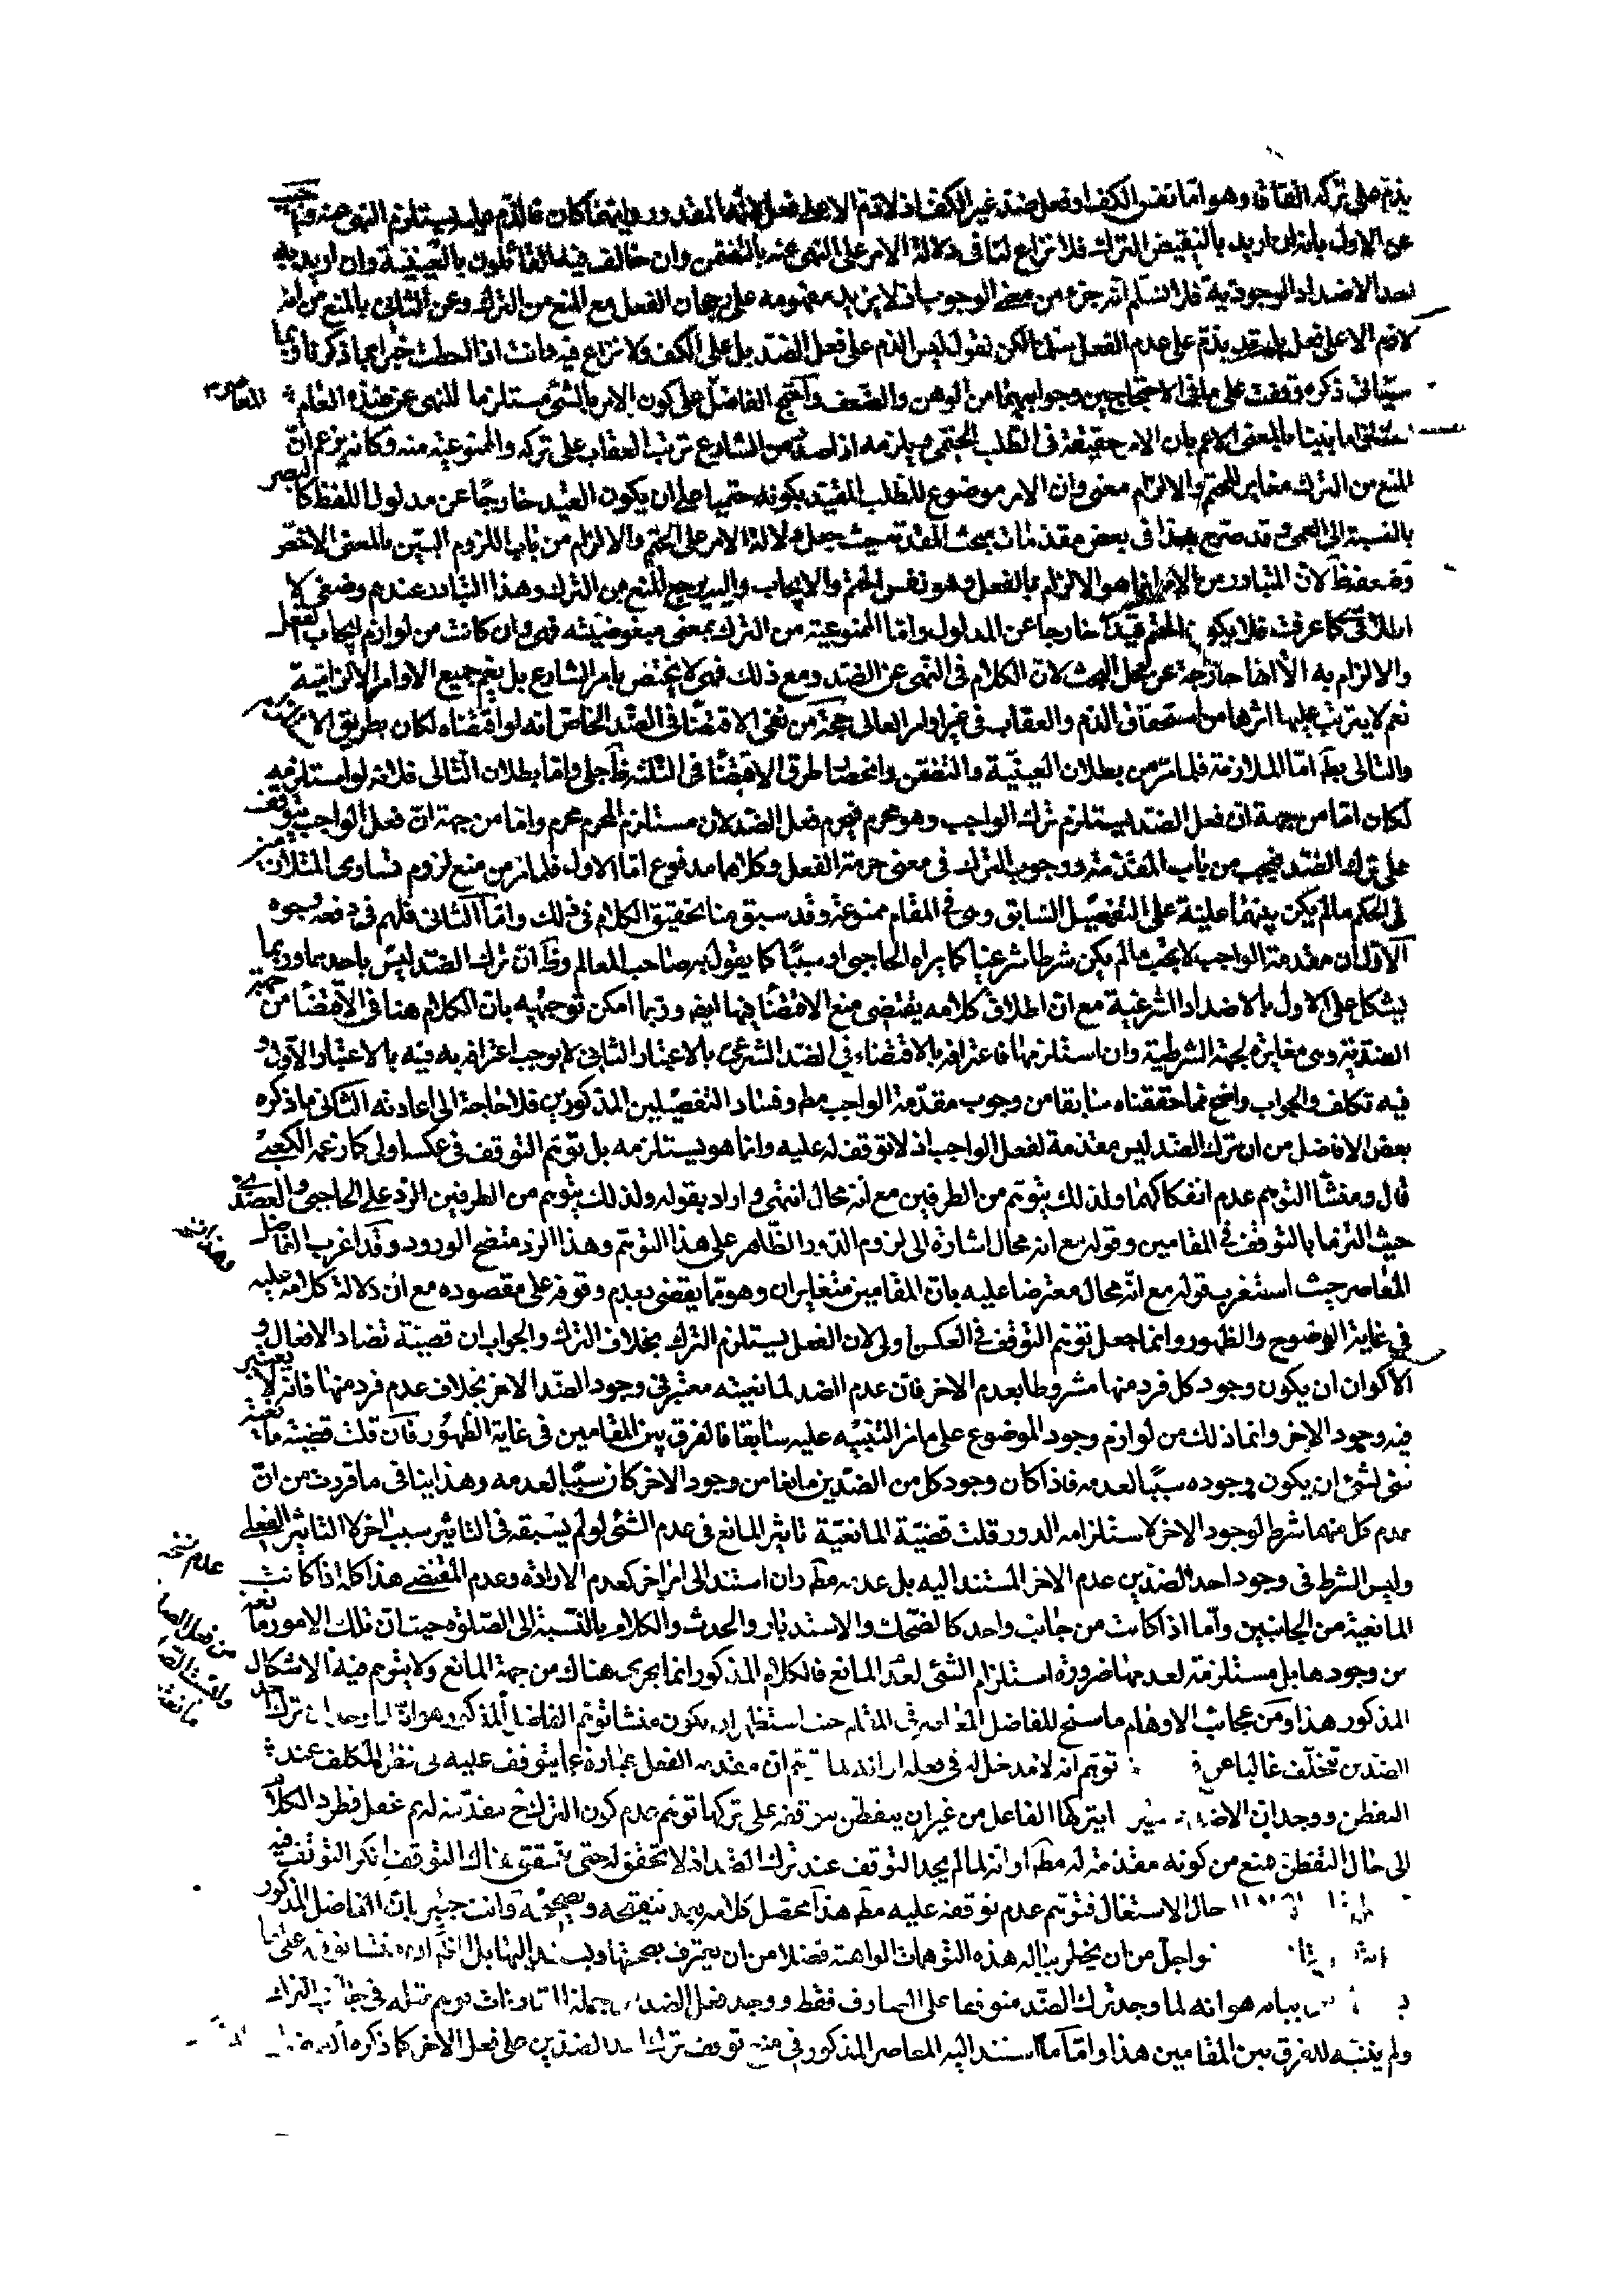 يذم على تركه اتفاقا وهو اما نفس الكف او فعل ضد غير الكف اذ لا ذم الا على فعل لانه المقدور وايتهما كان فالذم عليه يستلزم النهى عنه واجيب
عن الاول بانه ان اريد بالنقيض الترك فلا نزاع لنا فى دلالة الامر على النهى عنه بالتضمن وان خالف فيه القائلون بالعينية وان اريد به
احد الاضداد الوجودية فلا نسلم انه جزء من معنى الوجوب اذ لا يزيد مفهومه على رجحان الفعل مع المنع من الترك وعن الثانى بالمنع من انه
لا ذم الا على فعل بل قد يذم على عدم الفعل سلمنا لكن نقول ليس الذم على فعل الضد بل على الكف ولا نزاع فيه وانت اذا احطت خبرا بما ذكرنا وبما
سيأتى ذكره وقفت على ما فى الاحتجاجين وجوابيهما من الوهن والضعف واحتج الفاضل على كون الامر بالشئ مستلزما للنهى عن ضده العام
المعاصر
لزوما بينا بالمعنى الاعم بان الامر حقيقة فى الطلب الحتمى ويلزمه اذا صدر من الشارع ترتب العقاب على تركه والممنوعية منه وكانه يزعم ان
المنع من الترك مغاير للحتم والالزام معنى وان الامر موضوع للطلب المقيد بكونه حتميا على ان يكون القيد خارجا عن مدلول اللفظ كالبصر
بالنسبة الى العمى وقد صرح بهذا فى بعض مقدمات مبحث المقدمة حيث جعل دلالة الامر على الحتم والالزام من باب اللزوم البين بالمعنى الاخص
وضعفه ظ لان المتبادر من الامر انما هو الالزام بالفعل وهو نفس الحتم والايجاب واليه يرجع المنع من الترك وهذا التبادر عندهم وضعى لا
اطلاقى كما عرفت فلا يكون الحتم قيدا خارجا عن المدلول واما الممنوعية من الترك بمعنى مبغوضيته فهى وان كانت من لوازم ايجاب الفعل
والالزام به الا انها خارجة عن محل البحث لان الكلام فى النهى عن الضد ومع ذلك فهى لا يختص بامر الشارع بل يعم جميع الاوامر الالزامية
نعم لا يترتب عليها اثرها من استحقاق الذم والعقاب فى غير اوامر العالى حجة من نفى الاقتضاء فى الضد الخاص انه لو اقتضاه لكان بطريق الالتزام
والتالى بط اما الملازمة فلما مر من بطلان العينية والتضمن وانحصار طرق الاقتضاء فى الثلثة ظ جلى واما بطلان التالى فلانه لو استلزمه
لكان اما من جهة ان فعل الضد يستلزم ترك الواجب وهو محرم فيحرم فعل الضد لان مستلزم المحرم محرم واما من جهة ان فعل الواجب يتوقف
على ترك الضد فيجب من باب المقدمة ووجوب الترك فى معنى حرمة الفعل وكلاهما مدفوع اما الاول فلما مر من منع لزوم تساوى المتلازمين
فى الحكم ما لم يكن بينهما علية على التفصيل السابق وهى فى المقام ممنوعة وقد سبق منا تحقيق الكلام فى ذلك واما الثانى فلهم فى دفعه وجوه
الاول ان مقدمة الواجب لا يجب ما لم يكن شرطا شرعيا كما يراه الحاجبى او سببا كما يقول به صاحب المعالم وظ ان ترك الضد ليس باحدهما وربما
يشكل على الاول بالاضداد الشرعية مع ان اطلاق كلامه يقتضى منع الاقتضاء فيها ايض وربما امكن توجيهه بان الكلام هنا فى الاقتضاء من جهة
الضدية وهى مغايرة لجهة الشرطية وان استلزمها فاعترافه بالاقتضاء فى الضد الشرعى بالاعتبار الثانى لا يوجب اعترافه به فيه بالاعتبار الاول و
فيه تكلف والجواب واضح مما حققناه سابقا من وجوب مقدمة الواجب مط وفساد التفصيلين المذكورين فلا حاجة الى اعادته الثانى ما ذكره
بعض الافاضل من ان ترك الضد ليس مقدمة لفعل الواجب اذ لا توقف له عليه وانما هو يستلزمه بل توهم التوقف فى عكسه اولى كما زعمه الكعبى
قال ومنشأ التوهم عدم انفكاكهما ولذلك يتوهم من الطرفين مع انه محال انتهى واراد بقوله ولذلك يتوهم من الطرفين الرد على الحاجبى والعضدى
حيث التزما بالتوقف فى المقامين وقوله مع انه محال اشارة الى لزوم الدور الظاهر على هذا التوهم وهذا الرد متضح الورود وقد اغرب الفاضل
المعاصر حيث استغرب قوله مع انه محال معترضا عليه بان المقامين متغايران وهو مما يقضى بعدم وقوفه على مقصوده مع ان دلالة كلامه عليه
فى غاية الوضوح والظهور وانما جعل توهم التوقف فى العكس اولى لان الفعل يستلزم الترك بخلاف الترك والجواب ان قضية تضاد الافعال و
الاكوان ان يكون وجود كل فرد منها مشروطا بعدم الاخر فان عدم الضد لمانعيته معتبر فى وجود الضد الاخر بخلاف عدم فرد منها فانه لا يعتبر
فيه وجود الاخر وانما ذلك من لوازم وجود الموضوع على ما مر التنبيه عليه سابقا فالفرق بين المقامين فى غاية الظهور فان قلت قضية مانعية
شئ لشئ ان يكون وجوده سببا لعدمه فاذا كان وجود كل من الضدين مانعا من وجود الاخر كان سببا لعدمه وهذا ينافى ما قررت من ان
عدم كل منهما شرط لوجود الاخر لاستلزامه الدور قلت قضية المانعية تاثير المانع فى عدم الشئ لو لم يسبقه فى التاثير سبب اخر لا التاثير الفعلى
وليس الشرط فى وجود احد الضدين عدم الاخر المستند اليه بل عدمه مط وان استند الى امر اخر كعدم الارادة وعدم المقتضى هذا كله اذا كانت
المانعية من الجانبين واما اذا كانت من جانب واحد كالضحك والاستدبار والحدث والكلام بالنسبة الى الصلوة حيث ان تلك الامور مانعة
من وجودها بل مستلزمة لعدمها ضرورة استلزام الشئ لعدم المانع فالكلام المذكور انما يجرى هناك من جهة المانع ولا يتوهم فيه الاشكال
المذكور هذا ومن عجائب الاوهام ما سنح للفاضل المعاصر فى المقام حيث استظهر ان يكون منشأ توهم الفاضل المذكور هو انه لما وجد ان ترك احد
الضدين تخلف غالبا عن توهم انه لا مدخل له فى فعله ان مقدمة الفعل عبارة عما يتوقف عليه فى نظر المكلف عند
التفطن ووجد ان يتركها الفاعل من غير ان يتفطن بتوقفه على تركها توهم عدم كون الترك ح مقدمة له ثم غفل فطرد الكلام
الى حال التفطن فمنع من كونه مقدمة له مط او انه لما لم يجد التوقف عند ترك الضد اذ لا تحقق له حتى يتحقق هناك التوقف انكر التوقف فيه
حال الاشتغال فتوهم عدم توقفه عليه مط هذا محصل كلامه بعد تنقيحه وتصحيحه وانت خبير بان الفاضل المذكور
واجل من ان يخطر بباله هذه التوهمات الواهنة فضلا من ان يعترف بصحتها ويستند اليها بل منشا توهمه على ما
بيانه هو انه لما وجد ترك الضد متوقفا على الصارف فقط ووجد فعل الضد من جملة المقارنات توهم مثله فى جانب الترك
ولم يتنبه للفرق بين المقامين هذا واما ما استند اليه المعاصر المذكور فى منع توقف ترك احد الضدين على فعل الاخر كما ذكره